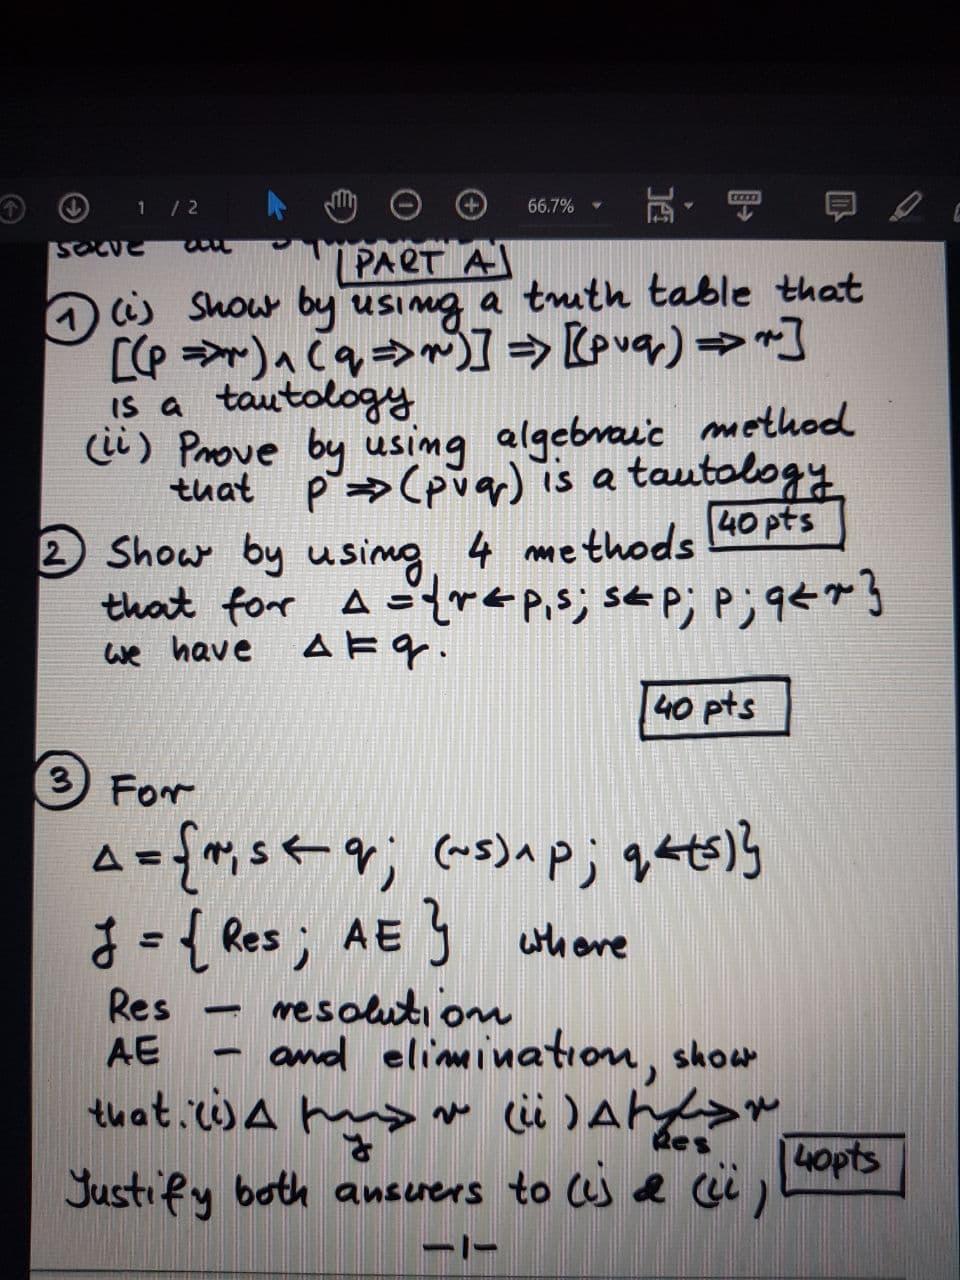 1 / 2
66.7%
solve all
PART A
① (i) Show by using a truth table that
[(p ⇒ r) ∧ (q ⇒ r)] ⇒ [(p∨q) ⇒ r]
is a tautology
(ii) Prove by using algebraic method
that p ⇒ (p∨q) is a tautology
40 pts
② Show by using 4 methods
that for Δ = {r ← p,s; s ← p; p; q ← r}
we have Δ ⊨ q.
40 pts
③ For
Δ = {r,s ← q; (~s) ∧ p; q ← s)}
J = { Res; AE } where
Res — resolution
AE — and elimination, show
that: (i) Δ ⟼ r (ii) Δ r
J Res
40pts
Justify both answers to (i) & (ii)
-1-